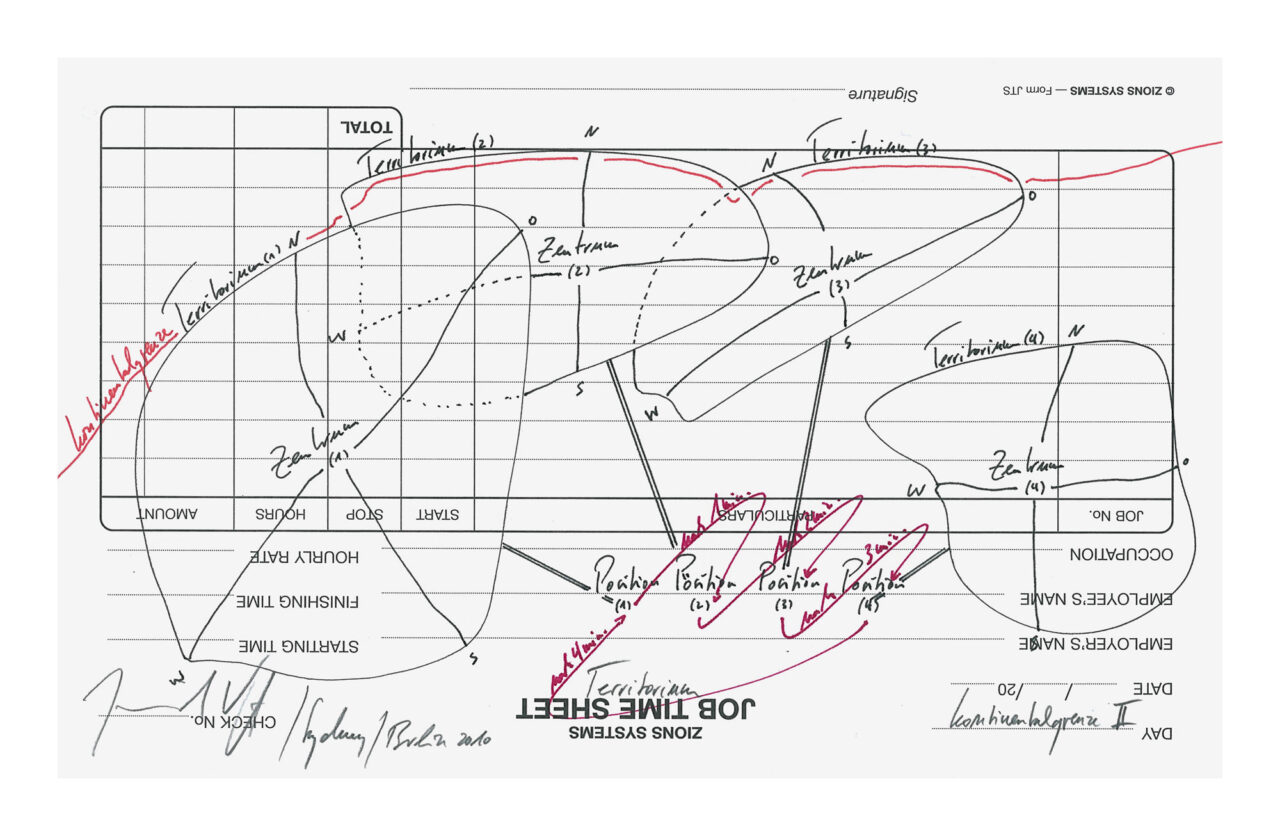 © ZIONS SYSTEMS — Form JTS
Signature
TOTAL
Territorium (2)
N
Territorium (3)
N
O
Territorium (1)
N
O
Zentrum
(2)
O
Zentrum
(3)
W
S
S
W
kontinentalgrenze
Territorium (4)
N
Zentrum
(1)
Zentrum
(4)
O
W
AMOUNT
HOURS
STOP
START
PARTICULARS
JOB No.
nach 1 min.
nach 2 min.
nach 3 min.
nach 4 min.
Position
(1)
Position
(2)
Position
(3)
Position
(4)
HOURLY RATE
FINISHING TIME
STARTING TIME
OCCUPATION
EMPLOYEE'S NAME
EMPLOYER'S NAME
S
W
S
DATE / /20
DAY
Territorium
kontinentalgrenze II
JOB TIME SHEET
ZIONS SYSTEMS
CHECK No.
/Sydney/Berlin 2010